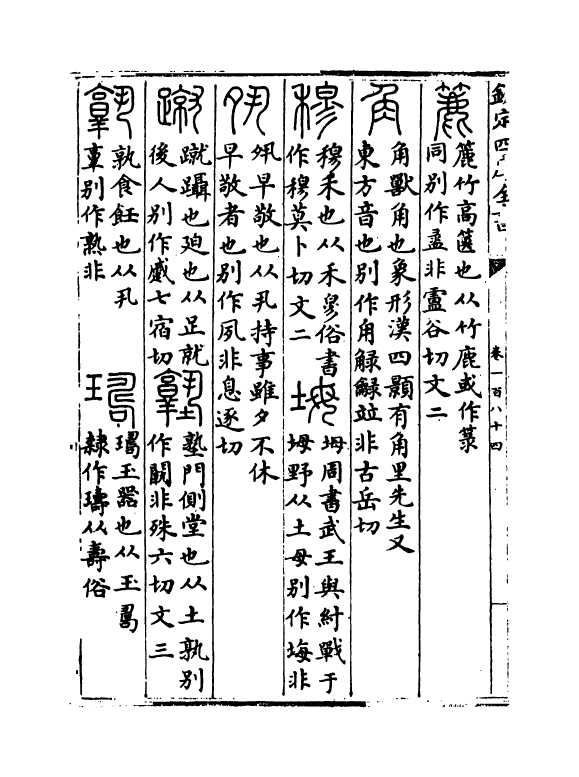 欽定四庫全書
卷一百八十四
簏 簏竹高篋也从竹鹿或作箓
同別作盝非盧谷切文二
角 角獸角也象形漢四顥有角里先生又
東方音也別作甪觮䚩竝非古岳切
穆 穆禾也从禾㣎俗書
作穆莫卜切文二
坶 坶周書武王與紂戰于
坶野从土母別作塰非
夙 夙早敬也从丮持事雖夕不休
早敬者也別作夙非息逐切
蹴 蹴躡也廹也从足就
後人別作蹙七宿切
塾 塾門側堂也从土孰別
作閮非殊六切文三
孰 孰食飪也从丮
𦎫別作熟非
瑁玉器也从玉𠷎
隸作璹从壽俗